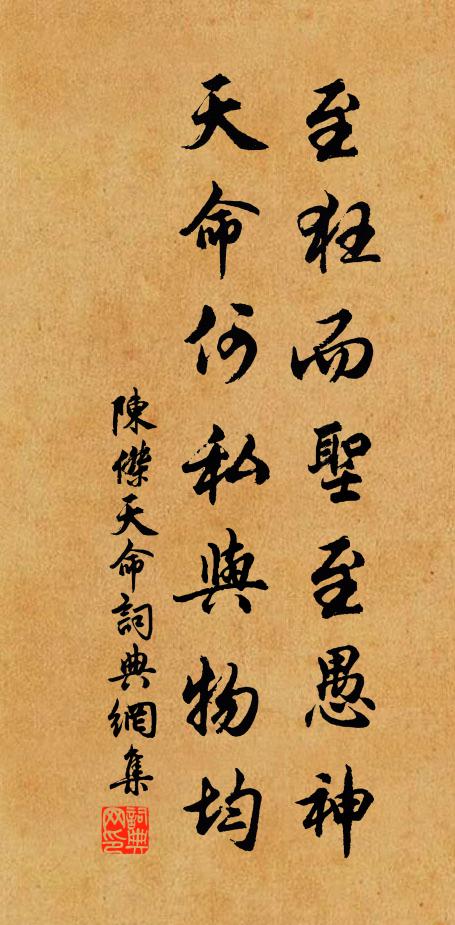 至狂而聖至愚神
天命何私與物均
陳傑天命詞典網集
詞典網印